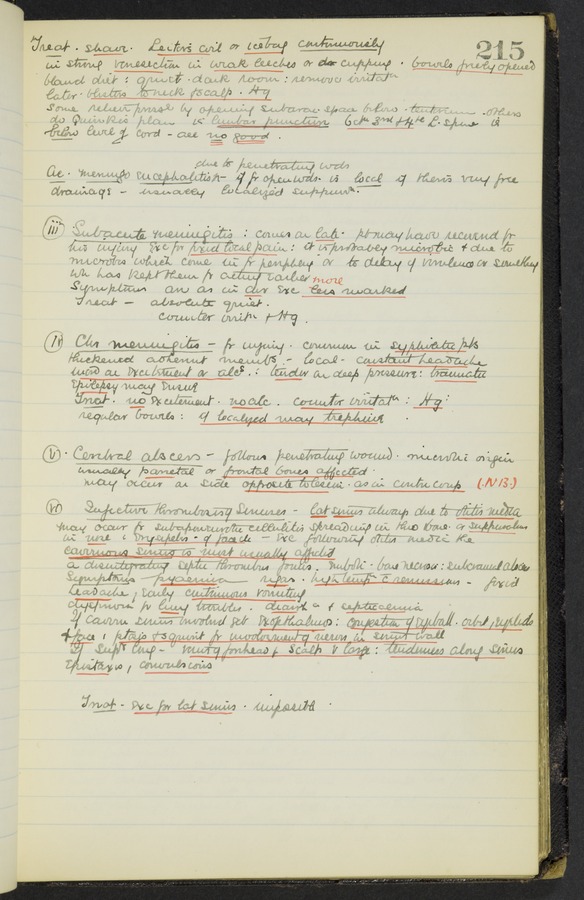 215
Treat. shave. Leiter's coil or icebag continuously
in strong venesection in weak leeches or cupping. bowels freely opened
bland diet: quiet. dark room: remove irritatn
later blisters to neck & scalp. Hg
some relieve press by opening subarac space below tentorium. others
do Quincke's plan is lumbar puncture bet 3rd & 4th L. Spine is
below level of cord - all no good.
due to penetrating wds
Ac. meningo encephalitis if fr open wds. is local if there's very free
drainage - usually localized suppurn.
(iii) Subacute meningitis: comes on late. pt may have recovered fr
his injury exc for fixed local pain: it is probably microbic & due to
microbes which come in fr periphery or to delay of virulence or something
wh has kept them fr acting earlier more
Symptoms are as in ac exc less marked
Treat - absolute quiet.
counter irritn & Hg.
(IV) Chr meningitis - fr injury. common in syphilitic pts
thickened adherent membs - local. constant headache
worse on excitement or alc.: tender on deep pressure: traumatic
epilepsy may ensue
Treat. no excitement. no alc. counter irritatn: Hg:
regular bowels: if localized may trephine
(v). Cerebral abscess - follows penetrating wound. microbic origin
usually parietal or frontal bones affected.
may occur on side opposite to lesion. as in contre coup (N.B.)
(vi) Infective thrombosing Sinuses - lat sinus always due to otitis media
may occur fr subaponeurotic cellulitis spreading in thro bone. or suppuration
in nose: erysipelas of face - exc following otitis media the
cavernous sinus is most usually affected
a disintegrating septic thrombus forms. embolic. bone necrosis: subcranial abscess
Symptoms - pyaemia rigors. high temp c remissions - fixed
headache, early continuous vomiting
dyspnoea fr lung troubles. diarrha & septicaemia
If cavern sinus involved get exopthalmos: congestion of eyeball. orbit, eyelids
& face: ptosis & squint fr involvement of nerves in sinus wall
If supr long - veins of forehead & scalp v large: tenderness along sinus
epistaxis, convulsions
Treat - exc for lat sinus. impossible.